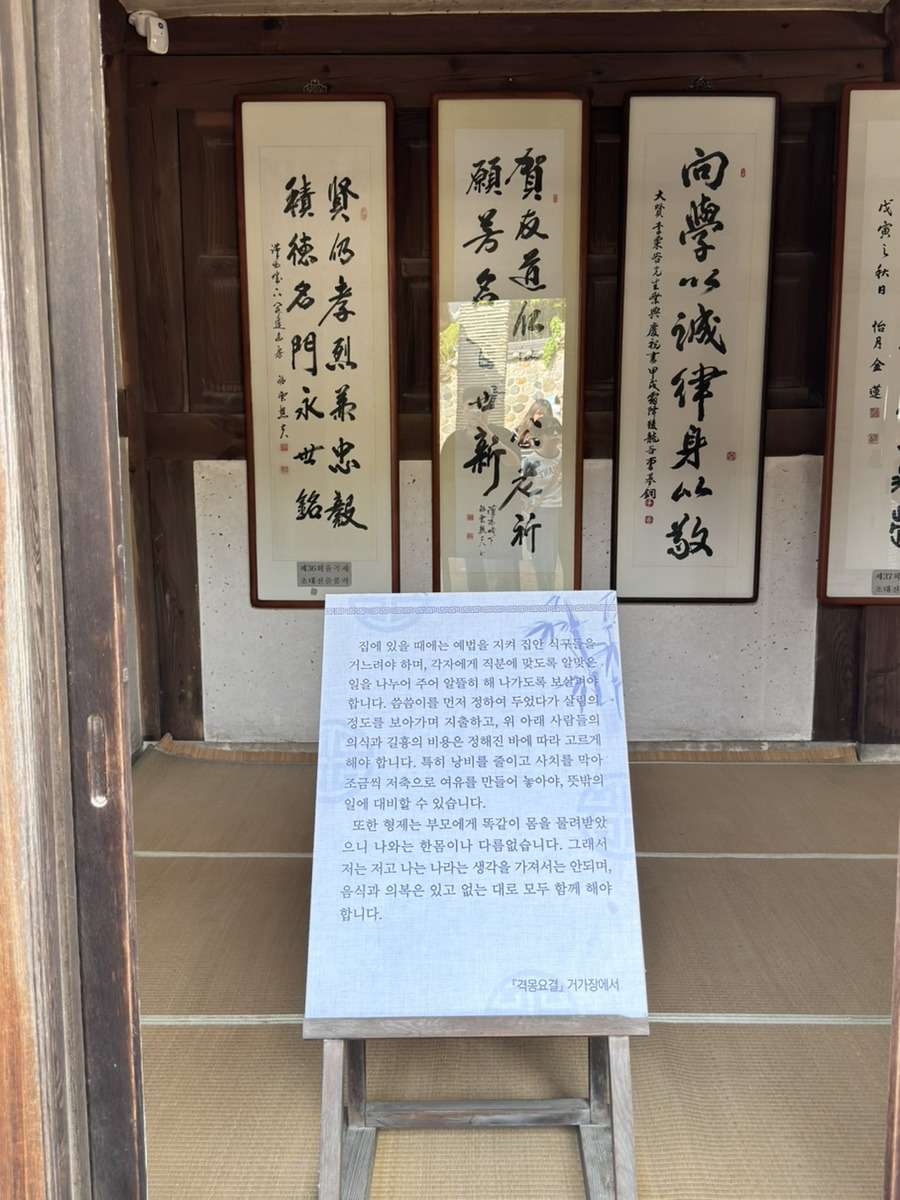 向學以誠律身以敬
大賢李栗谷先生
賀友道
公老祈
願芳名
世新
賢仍孝烈兼忠毅
積德名門永世銘
戊寅之秋日 怡月 金蓮
제36회율곡제
초대전출품작
제37회
초대
집에 있을 때에는 예법을 지켜 집안 식구들을
거느려야 하며, 각자에게 직분에 맞도록 알맞은
일을 나누어 주어 알뜰히 해 나가도록 보살펴야
합니다. 씀씀이를 먼저 정하여 두었다가 살림의
정도를 보아가며 지출하고, 위 아래 사람들의
의식과 길흉의 비용은 정해진 바에 따라 고르게
해야 합니다. 특히 낭비를 줄이고 사치를 막아
조금씩 저축으로 여유를 만들어 놓아야, 뜻밖의
일에 대비할 수 있습니다.
또한 형제는 부모에게 똑같이 몸을 물려받았
으니 나와는 한몸이나 다름없습니다. 그래서
저는 저고 나는 나라는 생각을 가져서는 안되며,
음식과 의복은 있고 없는 대로 모두 함께 해야
합니다.
『격몽요결』 거가장에서